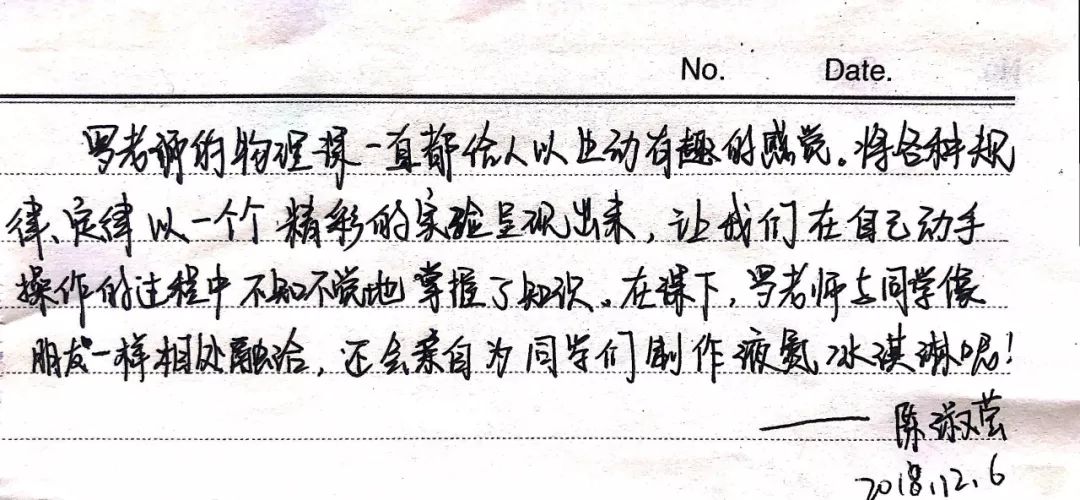 No. Date.
罗老师的物理课一直都给人以生动有趣的感觉。将各种规
律、定律以一个个精彩的实验呈现出来，让我们在自己动手
操作的过程中不知不觉地掌握了知识。在课下，罗老师与同学像
朋友一样相处融洽，还会亲自为同学们制作液氮冰淇淋呢！
——陈淑芸
2018.12.6